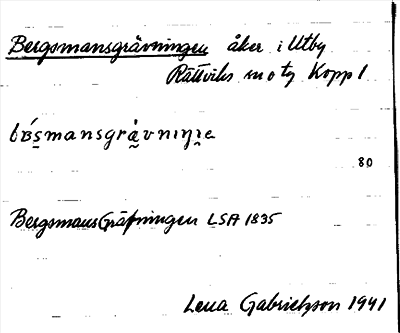 Bergsmansgrävningen åker i Utby
Rättviks sn o tg Kopp l
80
BergsmansGräfningen LSA 1835
Lena Gabrielsson 1941